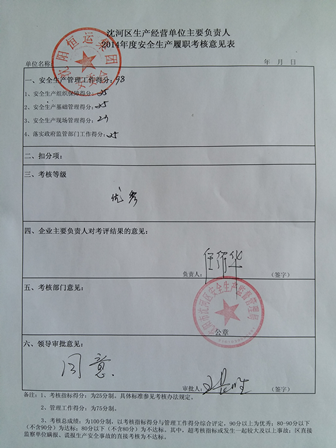 沈河区生产经营单位主要负责人
2014年度安全生产履职考核意见表
单位名称: 年 月 日
一、安全生产管理工作得分: 98
1、安全生产组织保障得分: 25
2、安全生产基础管理得分: 25
3、安全生产现场管理得分: 23
4、落实政府监管部门工作得分: 25
二、扣分项:
三、考核等级
优秀
四、企业主要负责人对考评结果的意见:
负责人: (签字)
五、考核部门意见:
公章
六、领导审批意见:
同意
审批人: (签字)
备注: 1、考核指标得分: 为25分制, 具体标准参见考核办法规定。
2、管理工作得分: 为75分制。
3、考核总成绩: 为100分制, 以考核指标得分与管理工作得分综合评定, 90分以上为优秀; 80-90分以下
(不含90分) 为达标; 80分以下 (不含80分) 为不达标。其中, 超考核指标或发生一起较大及以上事故; 区直接